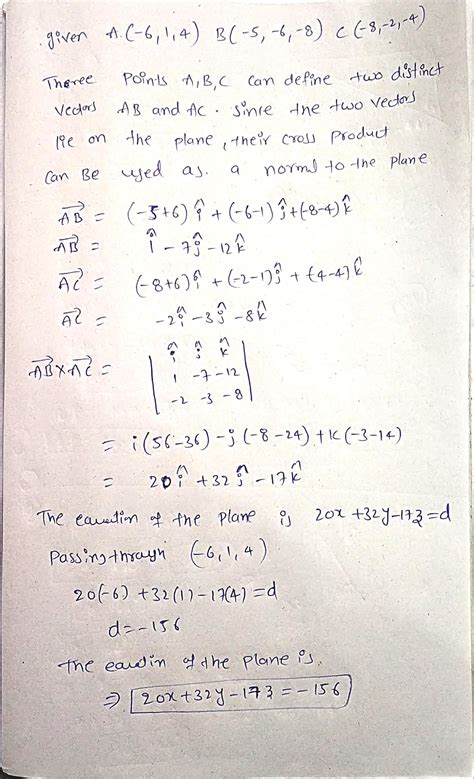 given A.(-6,1,4) B(-5,-6,-8) C(-8,-2,-4)
Theree Points A,B,C Can define two distinct
Vectors AB and AC. Since the two Vectors
lie on the plane, their cross Product
Can Be used as. a normal to the plane
→AB = (-5+6)î + (-6-1)ĵ+(-8-4)k̂
→AB = î - 7ĵ - 12k̂
→AC = (-8+6)î + (-2-1)ĵ + (-4-4)k̂
→AC = -2î - 3ĵ - 8k̂
→AB×→AC = | î ĵ k̂
1 -7 -12
-2 -3 -8 |
= i(56-36) - j(-8-24) + k(-3-14)
= 20î + 32ĵ - 17k̂
The equation of the plane is 20x+32y-17z=d
Passing through (-6,1,4)
20(-6) + 32(1) - 17(4) = d
d = -156
the equation of the plane is.
⇒ 20x+32y-17z = -156